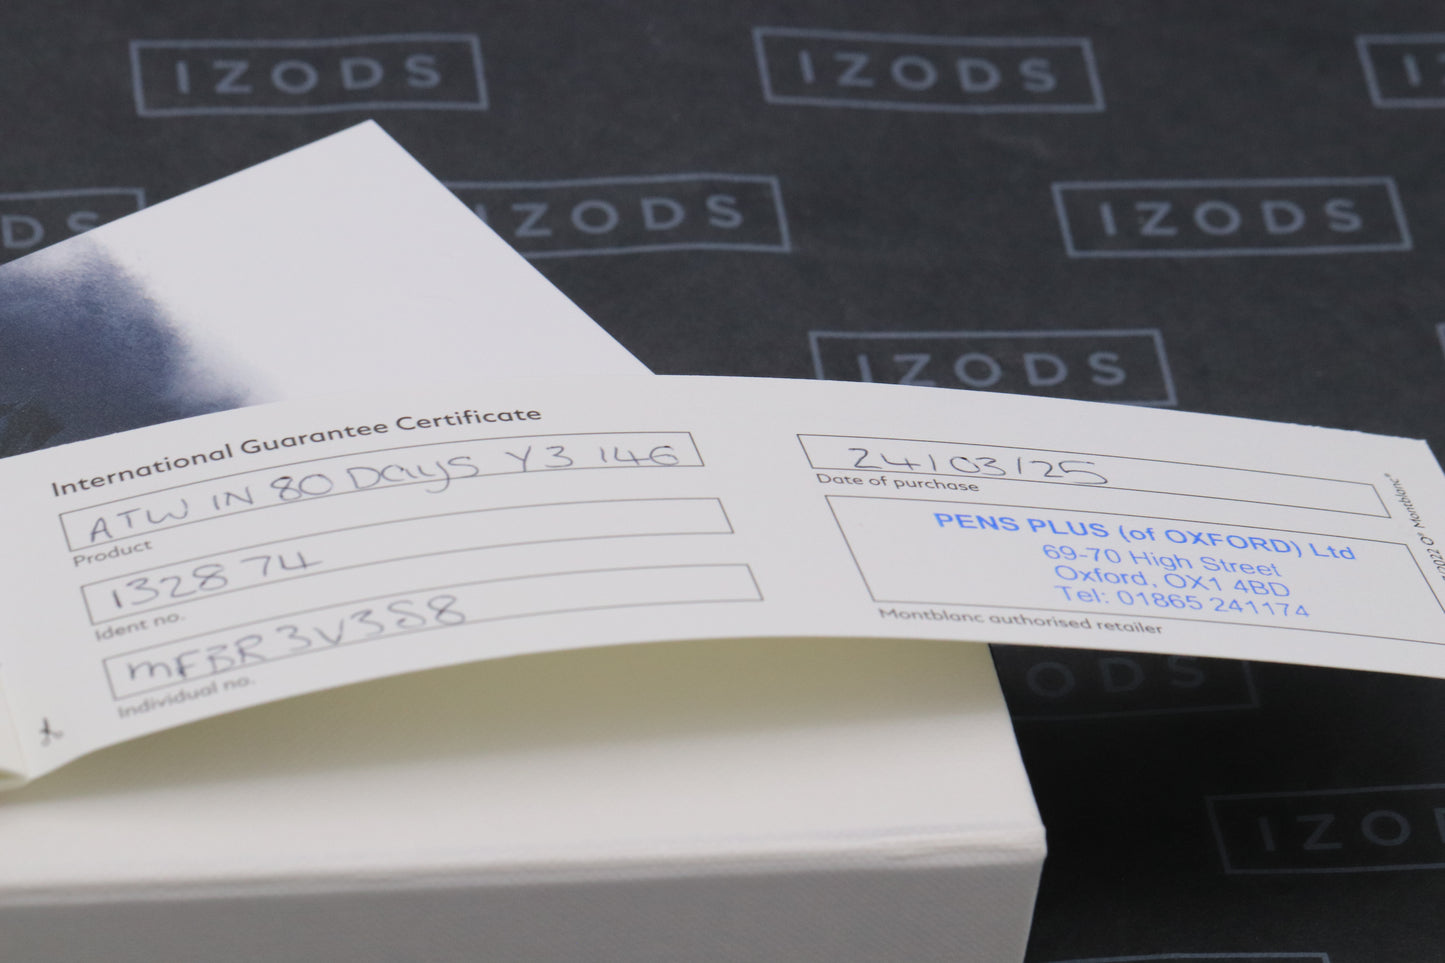 IZODS
IZODS
I
DS
IZODS
IZODS
IZODS
International Guarantee Certificate
ATW IN 80 Days Y3 146
Product
132874
Ident no.
MFBR3V3S8
Individual no.
24/03/25
Date of purchase
PENS PLUS (of OXFORD) Ltd
69-70 High Street
Oxford, OX1 4BD
Tel: 01865 241174
Montblanc authorised retailer
Montblanc®
ODS
IZO